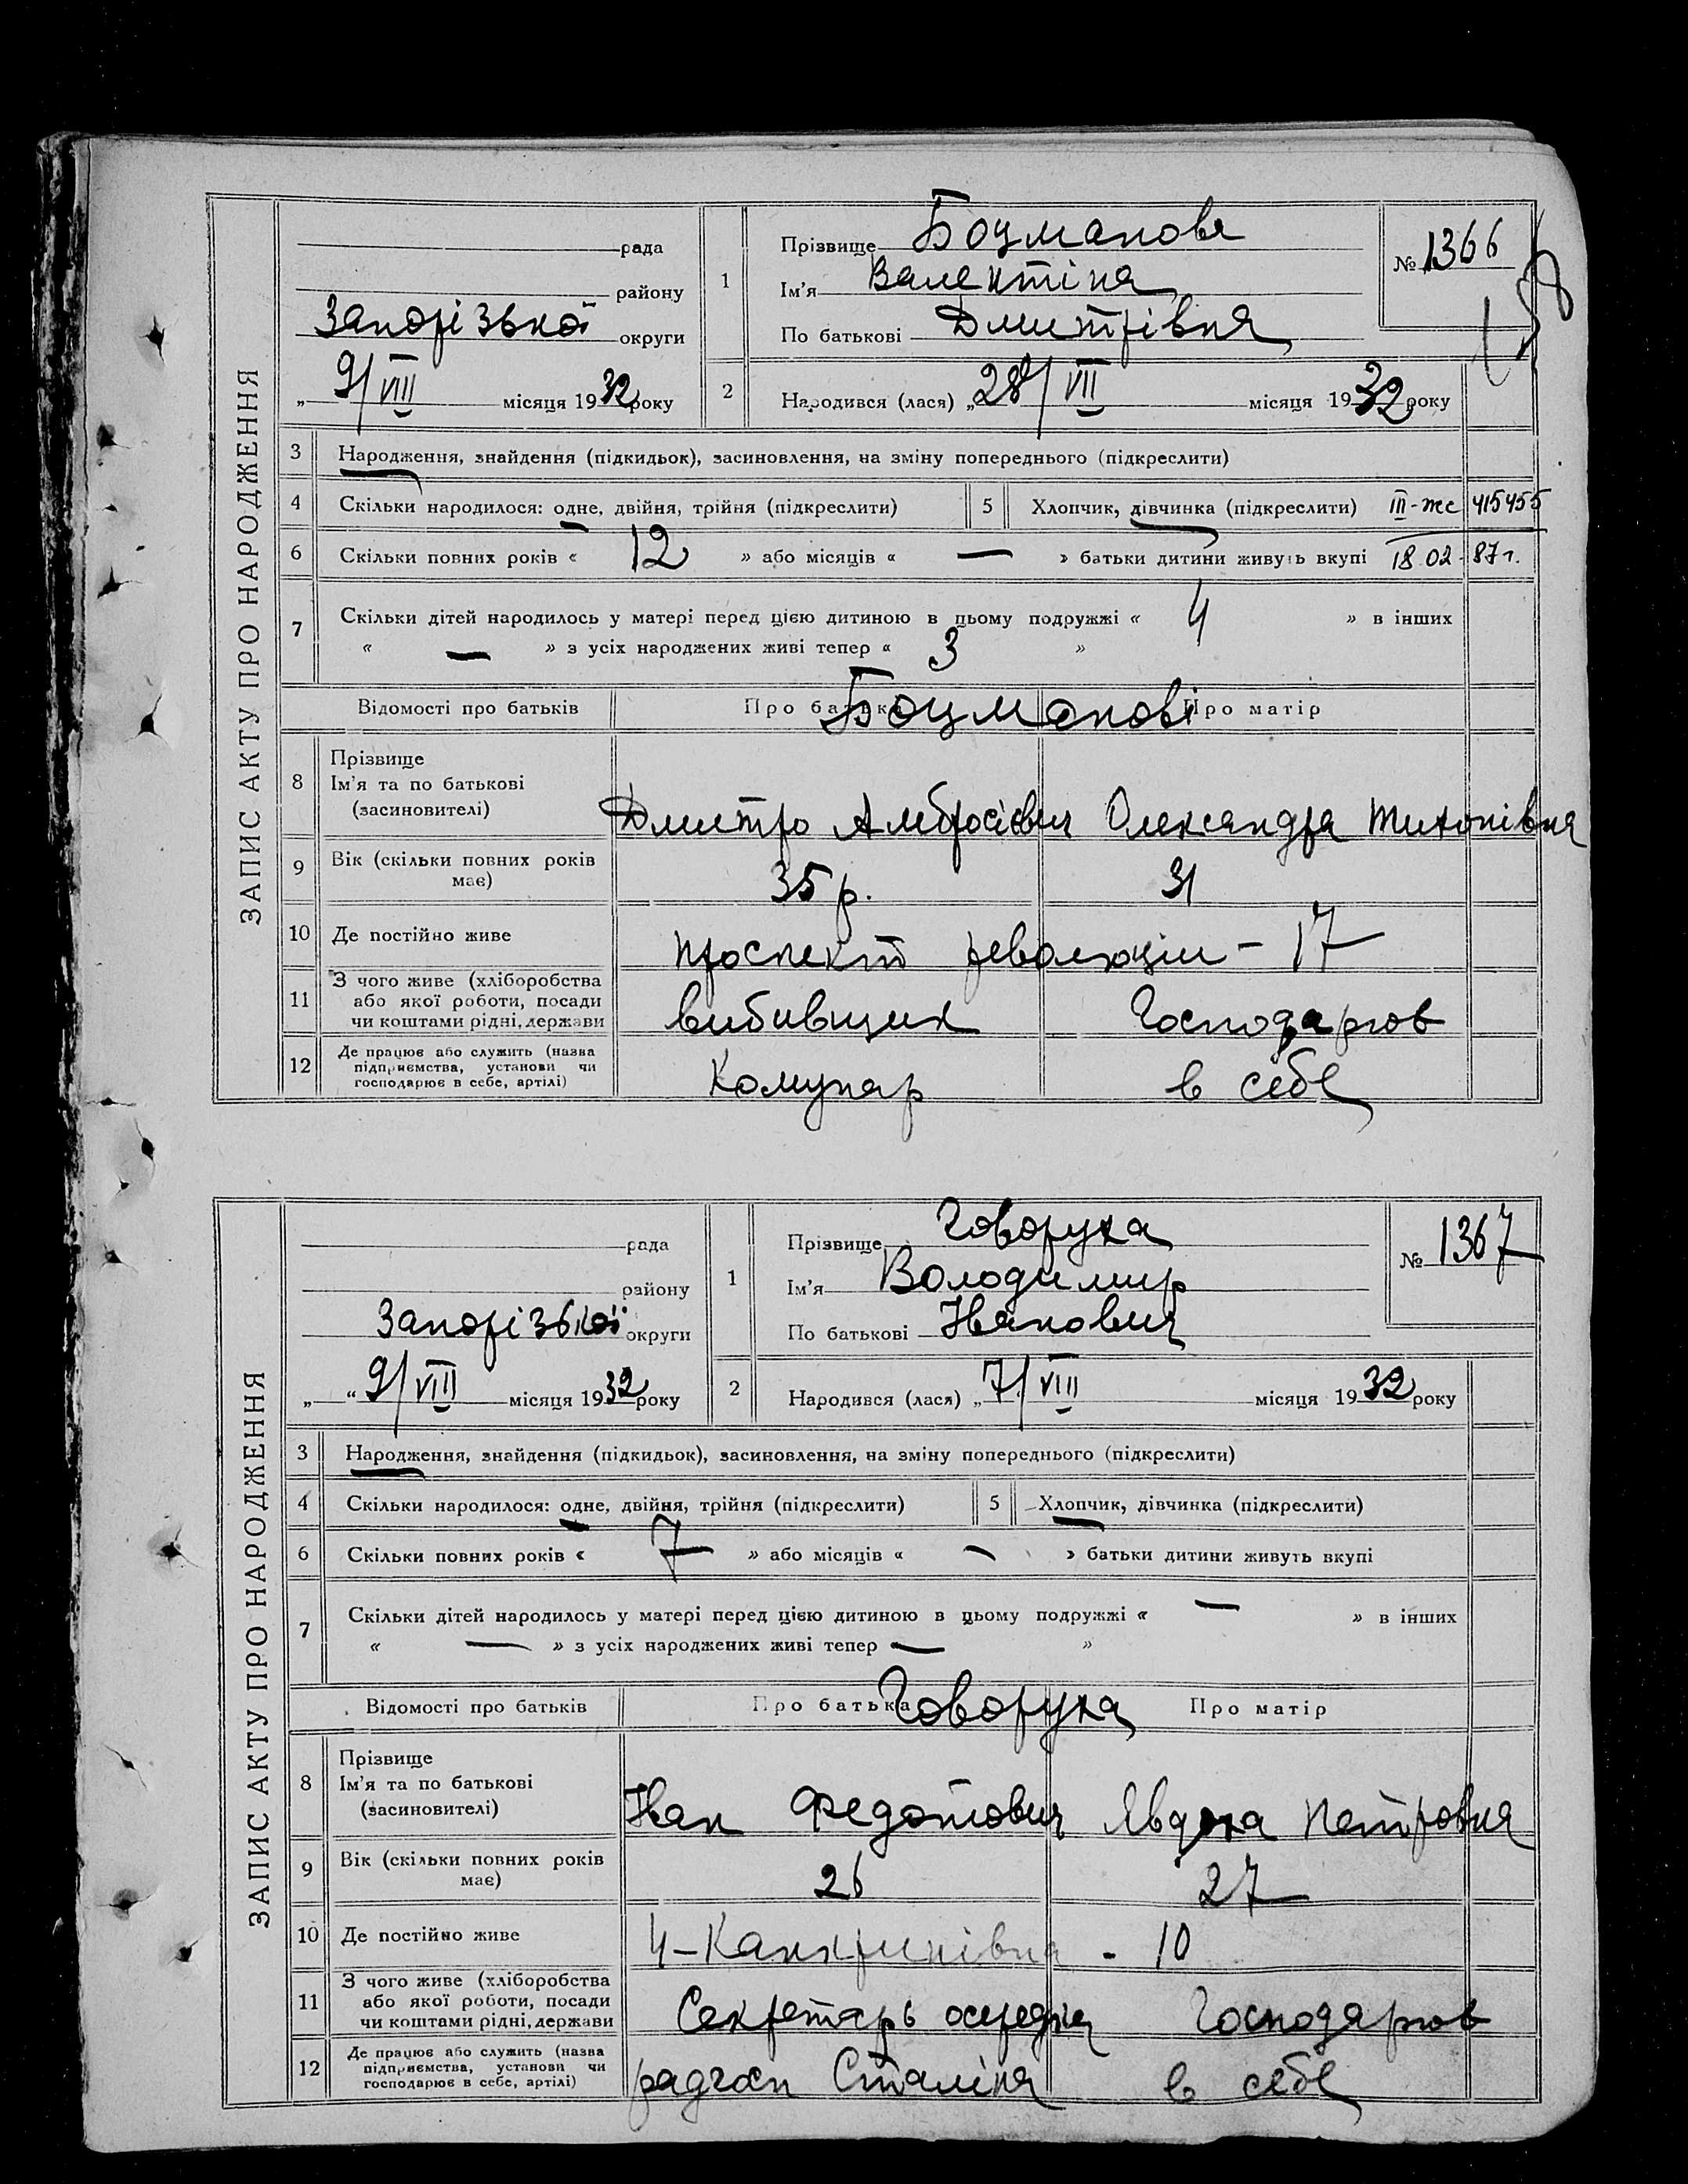 ЗАПИС АКТУ ПРО НАРОДЖЕННЯ
рада
району
Запорізької округи
„ 9/VIII місяця 1932 року
1 Прізвище Боцманова
Ім'я Валентіна
По батькові Дмитрівна
№ 1366
2 Народився (лася) „28/VII місяця 1932 року
3 Народження, знайдення (підкидьок), засиновлення, на зміну попереднього (підкреслити)
4 Скільки народилося: одне, двійня, трійня (підкреслити) 5 Хлопчик, дівчинка (підкреслити) III-жс 415455
6 Скільки повних років « 12 » або місяців « — » батьки дитини живуть вкупі 18.02.87 г.
7 Скільки дітей народилось у матері перед цією дитиною в цьому подружжі « 4 » в інших
« — » з усіх народжених живі тепер « 3 »
Відомості про батьків Про батька Про матір
Боцманові
8 Прізвище
Ім'я та по батькові
(засиновителі)
Дмитро Амбросієвич Олександра Тихонівна
9 Вік (скільки повних років має) 35 р. 31
10 Де постійно живе проспект революции - 17
11 З чого живе (хліборобства або якої роботи, посади чи коштами рідні, держави вибивщик Господарює
12 Де працює або служить (назва підприємства, установи чи господарює в себе, артілі) Комунар в себе
ЗАПИС АКТУ ПРО НАРОДЖЕННЯ
рада
району
Запорізької округи
„ “ 9/VIII місяця 1932 року
1 Прізвище Говоруха
Ім'я Володимир
По батькові Іванович
№ 1367
2 Народився (лася) „7/VIII місяця 1932 року
3 Народження, знайдення (підкидьок), засиновлення, на зміну попереднього (підкреслити)
4 Скільки народилося: одне, двійня, трійня (підкреслити) 5 Хлопчик, дівчинка (підкреслити)
6 Скільки повних років « 7 » або місяців « — » батьки дитини живуть вкупі
7 Скільки дітей народилось у матері перед цією дитиною в цьому подружжі « — » в інших
« — » з усіх народжених живі тепер — »
Відомості про батьків Про батька Про матір
Говоруха
8 Прізвище
Ім'я та по батькові
(засиновителі)
Іван Федотович Явдоха Петровна
9 Вік (скільки повних років має) 26 27
10 Де постійно живе 4-Канкринівна - 10
11 З чого живе (хліборобства або якої роботи, посади чи коштами рідні, держави Секретарь осередка Господарює
12 Де працює або служить (назва підприємства, установи чи господарює в себе, артілі) радгосп Сталіна в себе